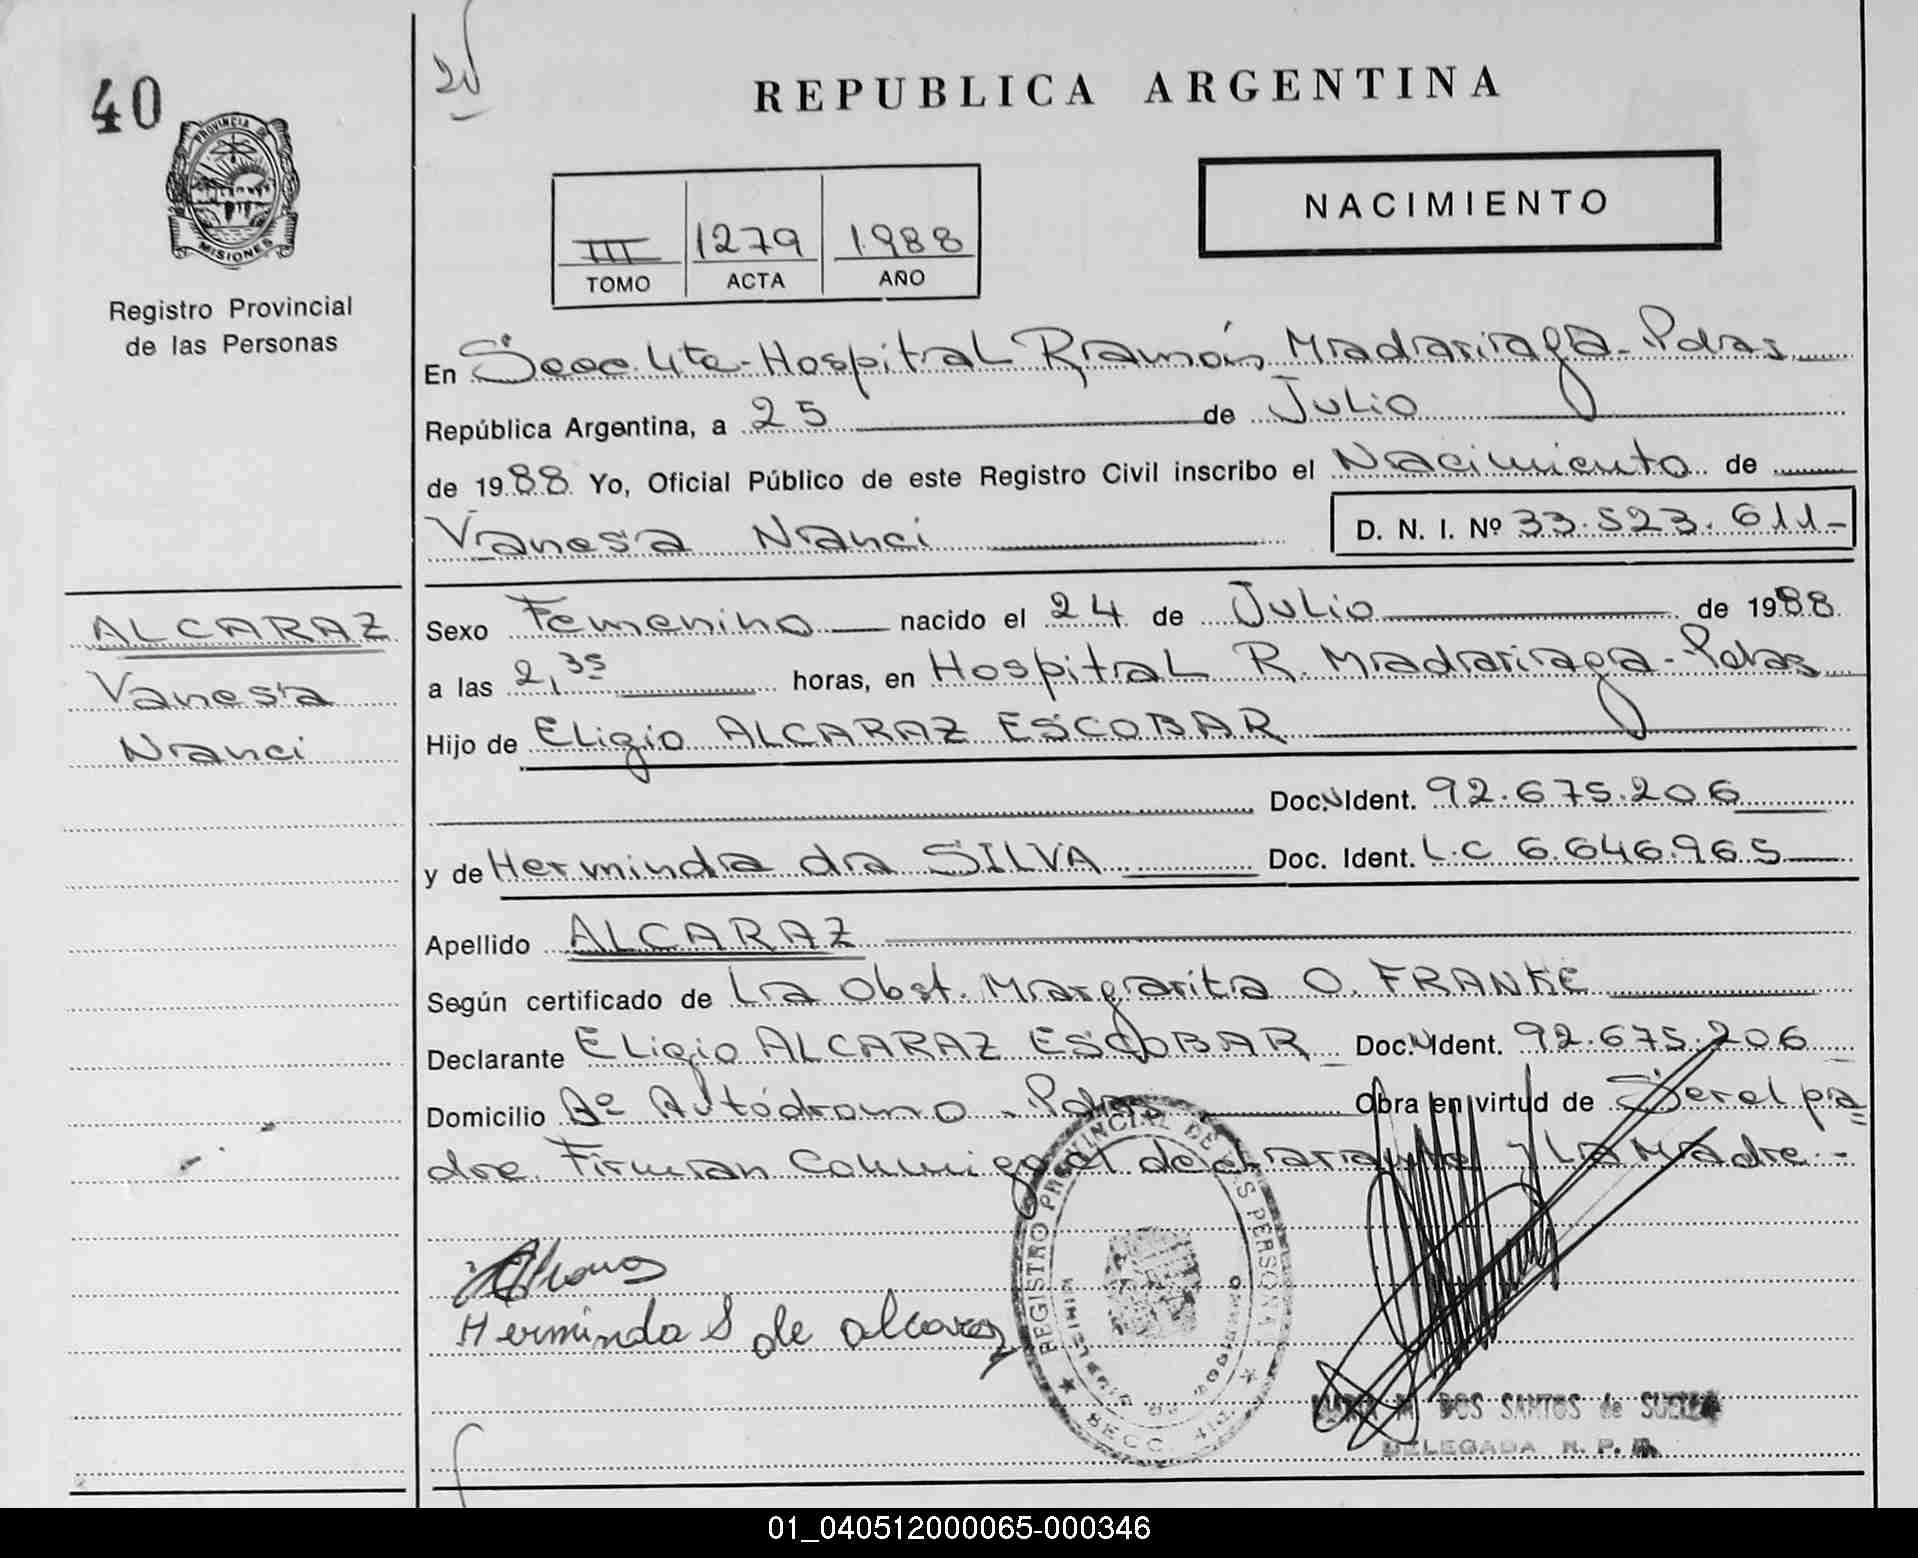 40
PROVINCIA DE
MISIONES
Registro Provincial
de las Personas
REPUBLICA ARGENTINA
NACIMIENTO
III 1279 1988
TOMO ACTA AÑO
En Secc. 4ta - Hospital Ramón Madariaga - Pdas
República Argentina, a 25 de Julio
de 1988 Yo, Oficial Público de este Registro Civil inscribo el Nacimiento de
Vanesa Nanci D. N. I. Nº 33.523.611-
ALCARAZ
Vanesa
Nanci
Sexo Femenino nacido el 24 de Julio de 1988
a las 2,35 horas, en Hospital R. Madariaga - Pdas
Hijo de Eligio ALCARAZ ESCOBAR
Doc. Ident. 92.675.206
y de Herminda da SILVA Doc. Ident. L.C 6.646.965
Apellido ALCARAZ
Según certificado de La Obst. Margarita O. FRANKE
Declarante Eligio ALCARAZ ESCOBAR Doc. Ident. 92.675.206
Domicilio Bº Autódromo - Pdas Obra en virtud de Ser el pa=
dre. Firman conmigo el declarante y La Madre.-
Herminda S de alcaraz
REGISTRO PROVINCIAL DE LAS PERSONAS
SECC. 4TA
DOS SANTOS de
DELEGADA R. P.
01_040512000065-000346